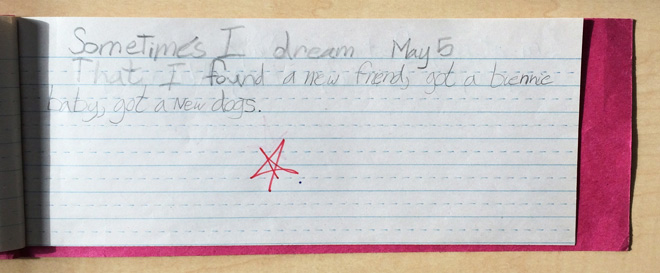 SomeTimes I dream May 5
That I found a new friend, got a biennie
baby, got a new dogs.